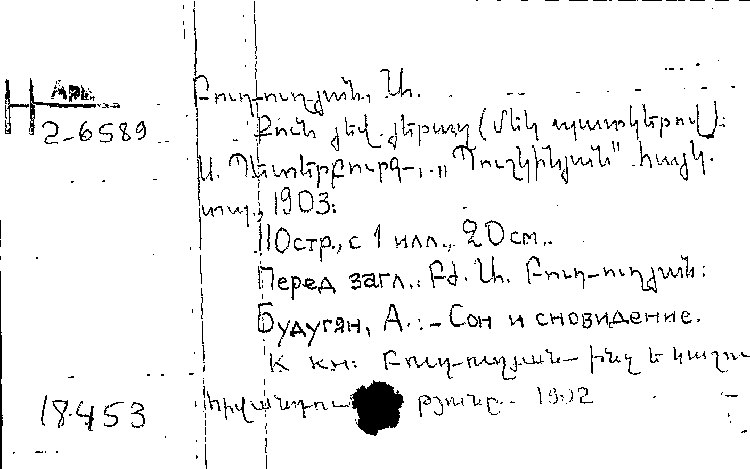 Арм.
2-6589
Բուդուղյան, Ա.
Քուն եվ երազ (մեկ պատկերով):
Ս. Պետերբուրգ, „Պուշկինյան" հայկ.
տպ., 1903:
110стр., с 1 илл., 20см..
Перед загл.: Բժ. Ա. Բուդուղյան:
Будугян, А. :- Сон и сновидение.
К кн: Բուդուղյան ինչ է
18453
1902